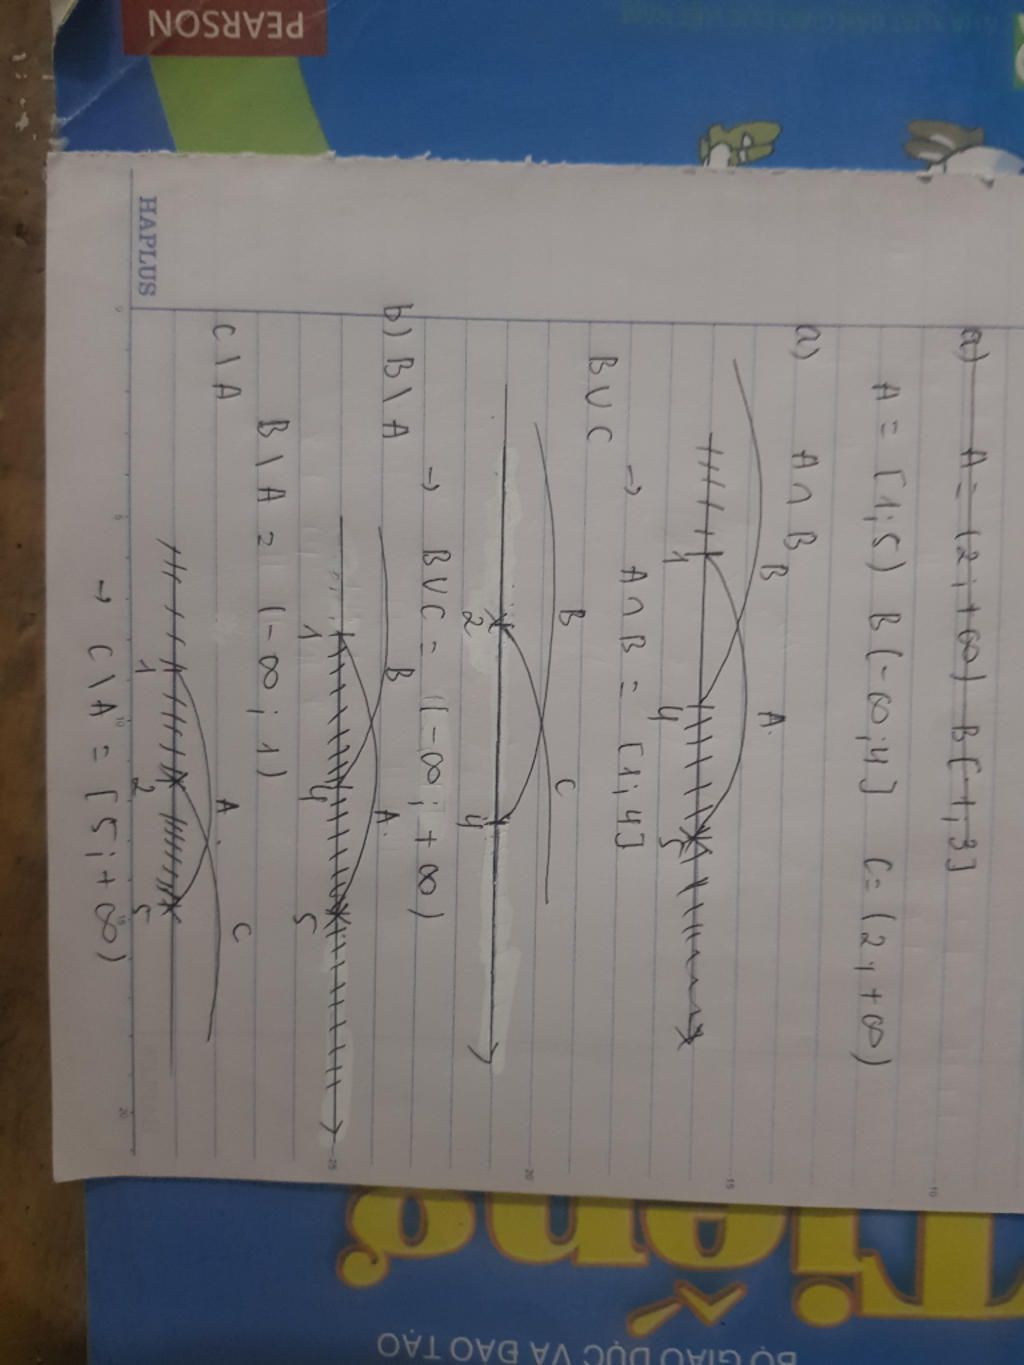 PEARSON
HAPLUS
a) A = (2; +∞) B(-1; 3]
A = [1; 5) B(-∞; 4] C = (2; +∞)
a) A ∩ B
B A
1 4 5
→ A ∩ B = [1; 4]
B ∪ C
B C
2 4
→ B ∪ C = (-∞; +∞)
b) B \ A
B A
1 4 5
B \ A = (-∞; 1)
C \ A
A C
1 2 5
→ C \ A = [5; +∞)
0 5 10 15 20
10 15 20 25
Tiếng
BỘ GIÁO DỤC VÀ ĐÀO TẠO